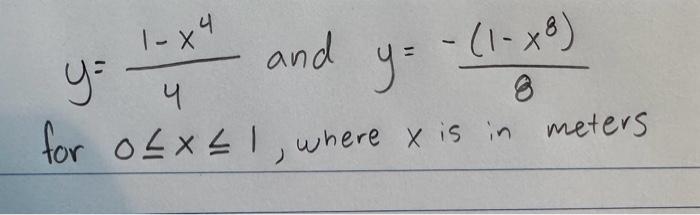 y = (1-x⁴)/4 and y = -(1-x⁸)/8
for 0≤x≤1, where x is in meters